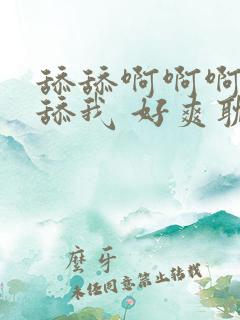 舔舔啊啊啊
舔我 好爽耽
磨牙
未经同意禁止转载